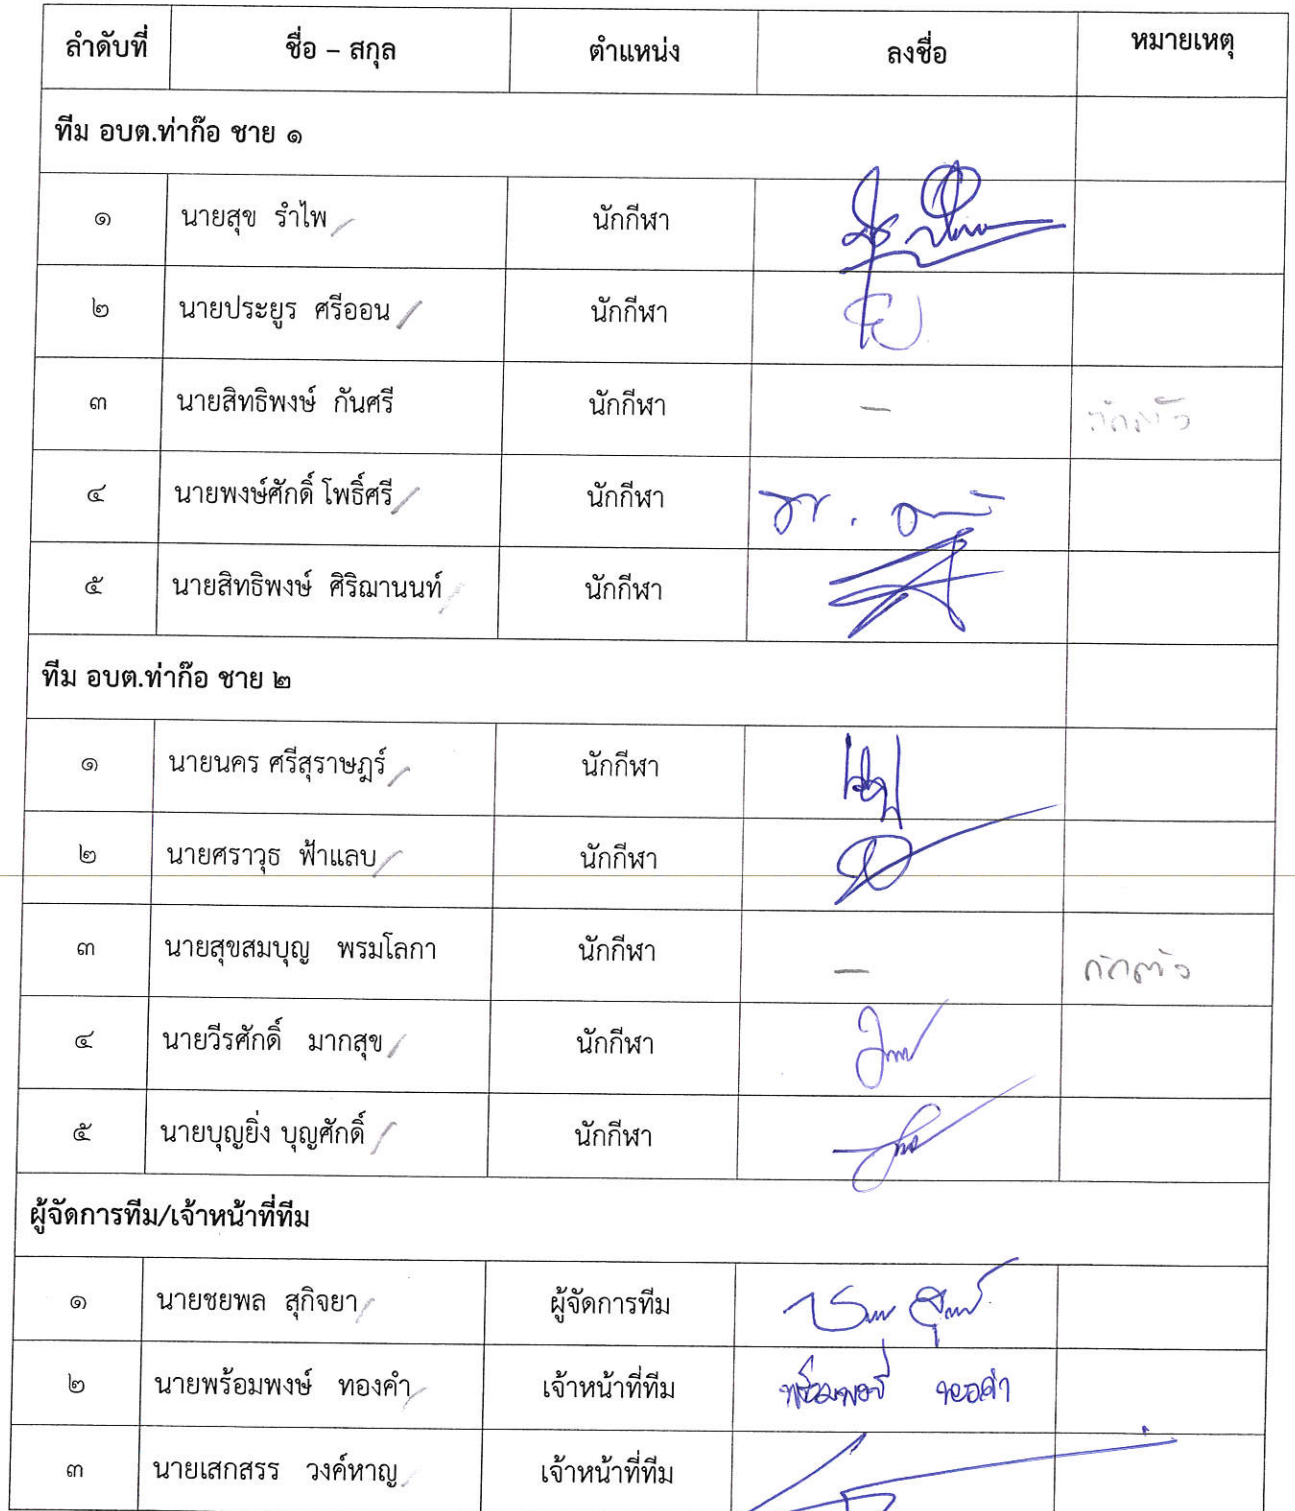 ลำดับที่ ชื่อ – สกุล ตำแหน่ง ลงชื่อ หมายเหตุ
ทีม อบต.ท่าก๊อ ชาย ๑
๑ นายสุข รำไพ นักกีฬา
๒ นายประยูร ศรีออน นักกีฬา
๓ นายสิทธิพงษ์ กันศรี นักกีฬา –
๔ นายพงษ์ศักดิ์ โพธิ์ศรี นักกีฬา
๕ นายสิทธิพงษ์ ศิริฌานนท์ นักกีฬา
ทีม อบต.ท่าก๊อ ชาย ๒
๑ นายนคร ศรีสุราษฎร์ นักกีฬา
๒ นายศราวุธ ฟ้าแลบ นักกีฬา
๓ นายสุขสมบุญ พรมโลกา นักกีฬา –
๔ นายวีรศักดิ์ มากสุข นักกีฬา
๕ นายบุญยิ่ง บุญศักดิ์ นักกีฬา
ผู้จัดการทีม/เจ้าหน้าที่ทีม
๑ นายชยพล สุกิจยา ผู้จัดการทีม
๒ นายพร้อมพงษ์ ทองคำ เจ้าหน้าที่ทีม พร้อมพงษ์ ทองคำ
๓ นายเสกสรร วงค์หาญ เจ้าหน้าที่ทีม